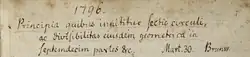 1796.
Principia quibus innititur sectio circuli,
ac divisibilitas eiusdem geometrica in
septendecim partes &c. Mart. 30. Brunsv.